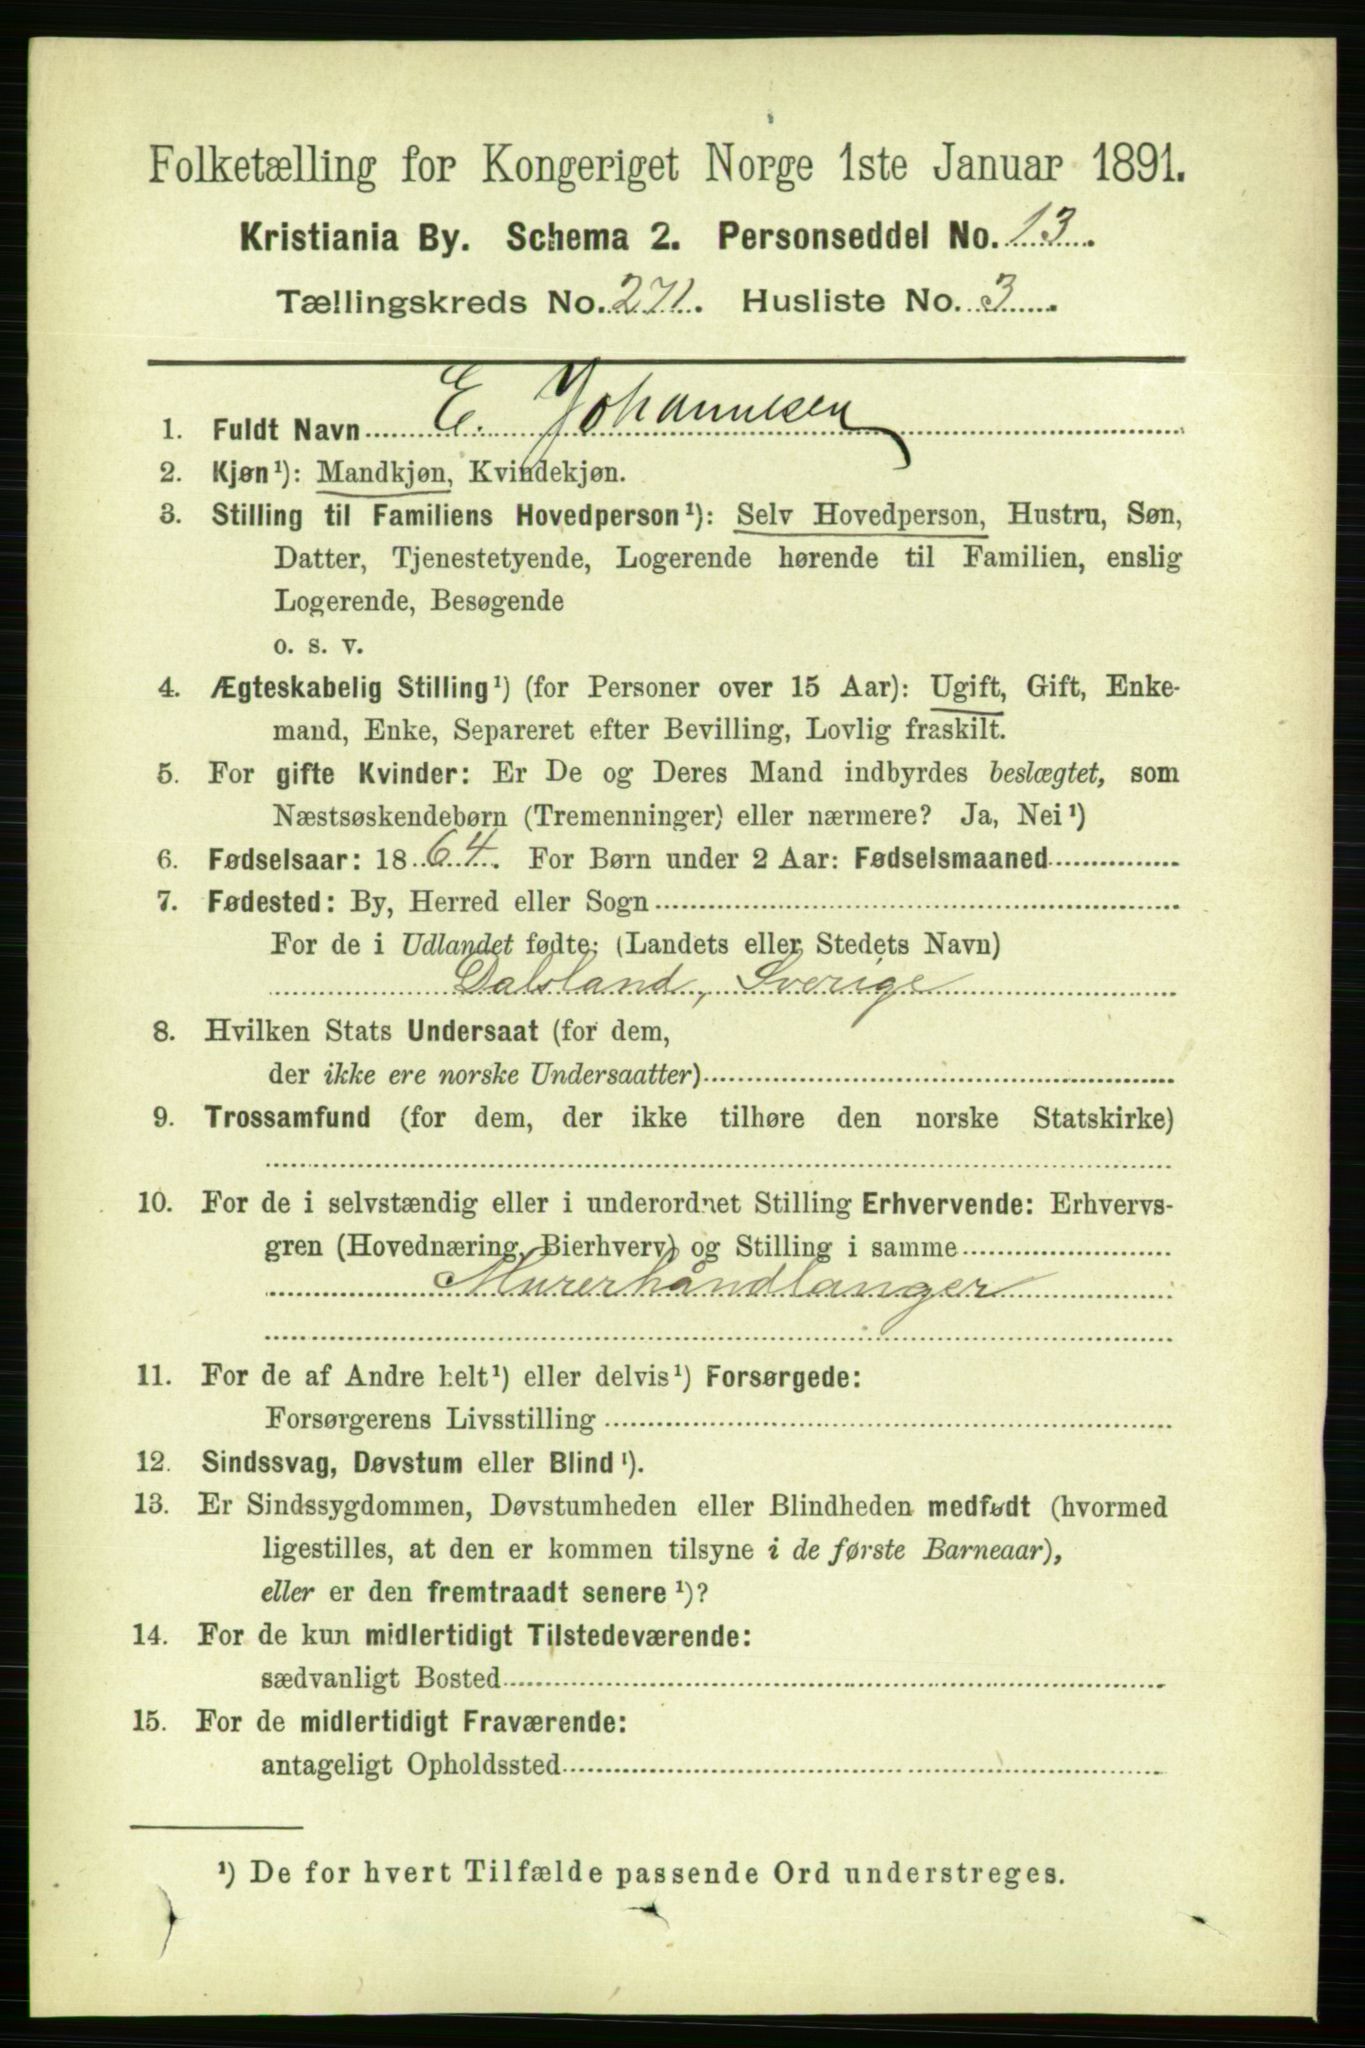 Folketælling for Kongeriget Norge 1ste Januar 1891.
Kristiania By. Schema 2. Personseddel No. 13.
Tællingskreds No. 271. Husliste No. 3.
1. Fuldt Navn E. Johannesen
2. Kjøn¹): Mandkjøn, Kvindekjøn.
3. Stilling til Familiens Hovedperson¹): Selv Hovedperson, Hustru, Søn,
Datter, Tjenestetyende, Logerende hørende til Familien, enslig
Logerende, Besøgende
o. s. v.
4. Ægteskabelig Stilling¹) (for Personer over 15 Aar): Ugift, Gift, Enke-
mand, Enke, Separeret efter Bevilling, Lovlig fraskilt.
5. For gifte Kvinder: Er De og Deres Mand indbyrdes beslægtet, som
Næstsøskendebørn (Tremenninger) eller nærmere? Ja, Nei¹)
6. Fødselsaar: 1864. For Børn under 2 Aar: Fødselsmaaned
7. Fødested: By, Herred eller Sogn
For de i Udlandet fødte: (Landets eller Stedets Navn)
Dalsland, Sverige
8. Hvilken Stats Undersaat (for dem,
der ikke ere norske Undersaatter)
9. Trossamfund (for dem, der ikke tilhøre den norske Statskirke)
10. For de i selvstændig eller i underordnet Stilling Erhvervende: Erhvervs-
gren (Hovednæring, Bierhverv) og Stilling i samme
Murerhåndlanger
11. For de af Andre helt¹) eller delvis¹) Forsørgede:
Forsørgerens Livsstilling
12. Sindssvag, Døvstum eller Blind¹).
13. Er Sindssygdommen, Døvstumheden eller Blindheden medfødt (hvormed
ligestilles, at den er kommen tilsyne i de første Barneaar),
eller er den fremtraadt senere¹)?
14. For de kun midlertidigt Tilstedeværende:
sædvanligt Bosted
15. For de midlertidigt Fraværende:
antageligt Opholdssted
¹) De for hvert Tilfælde passende Ord understreges.